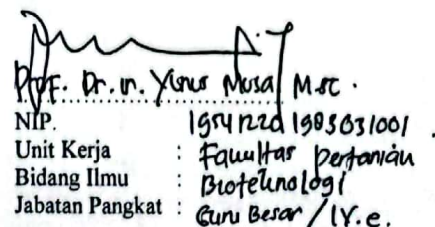 Prof. Dr. Ir. Yunus Musa M.Sc.
NIP. 19541220 198303 1001
Unit Kerja : Fakultas Pertanian
Bidang Ilmu : Bioteknologi
Jabatan Pangkat : Guru Besar / IV.e.